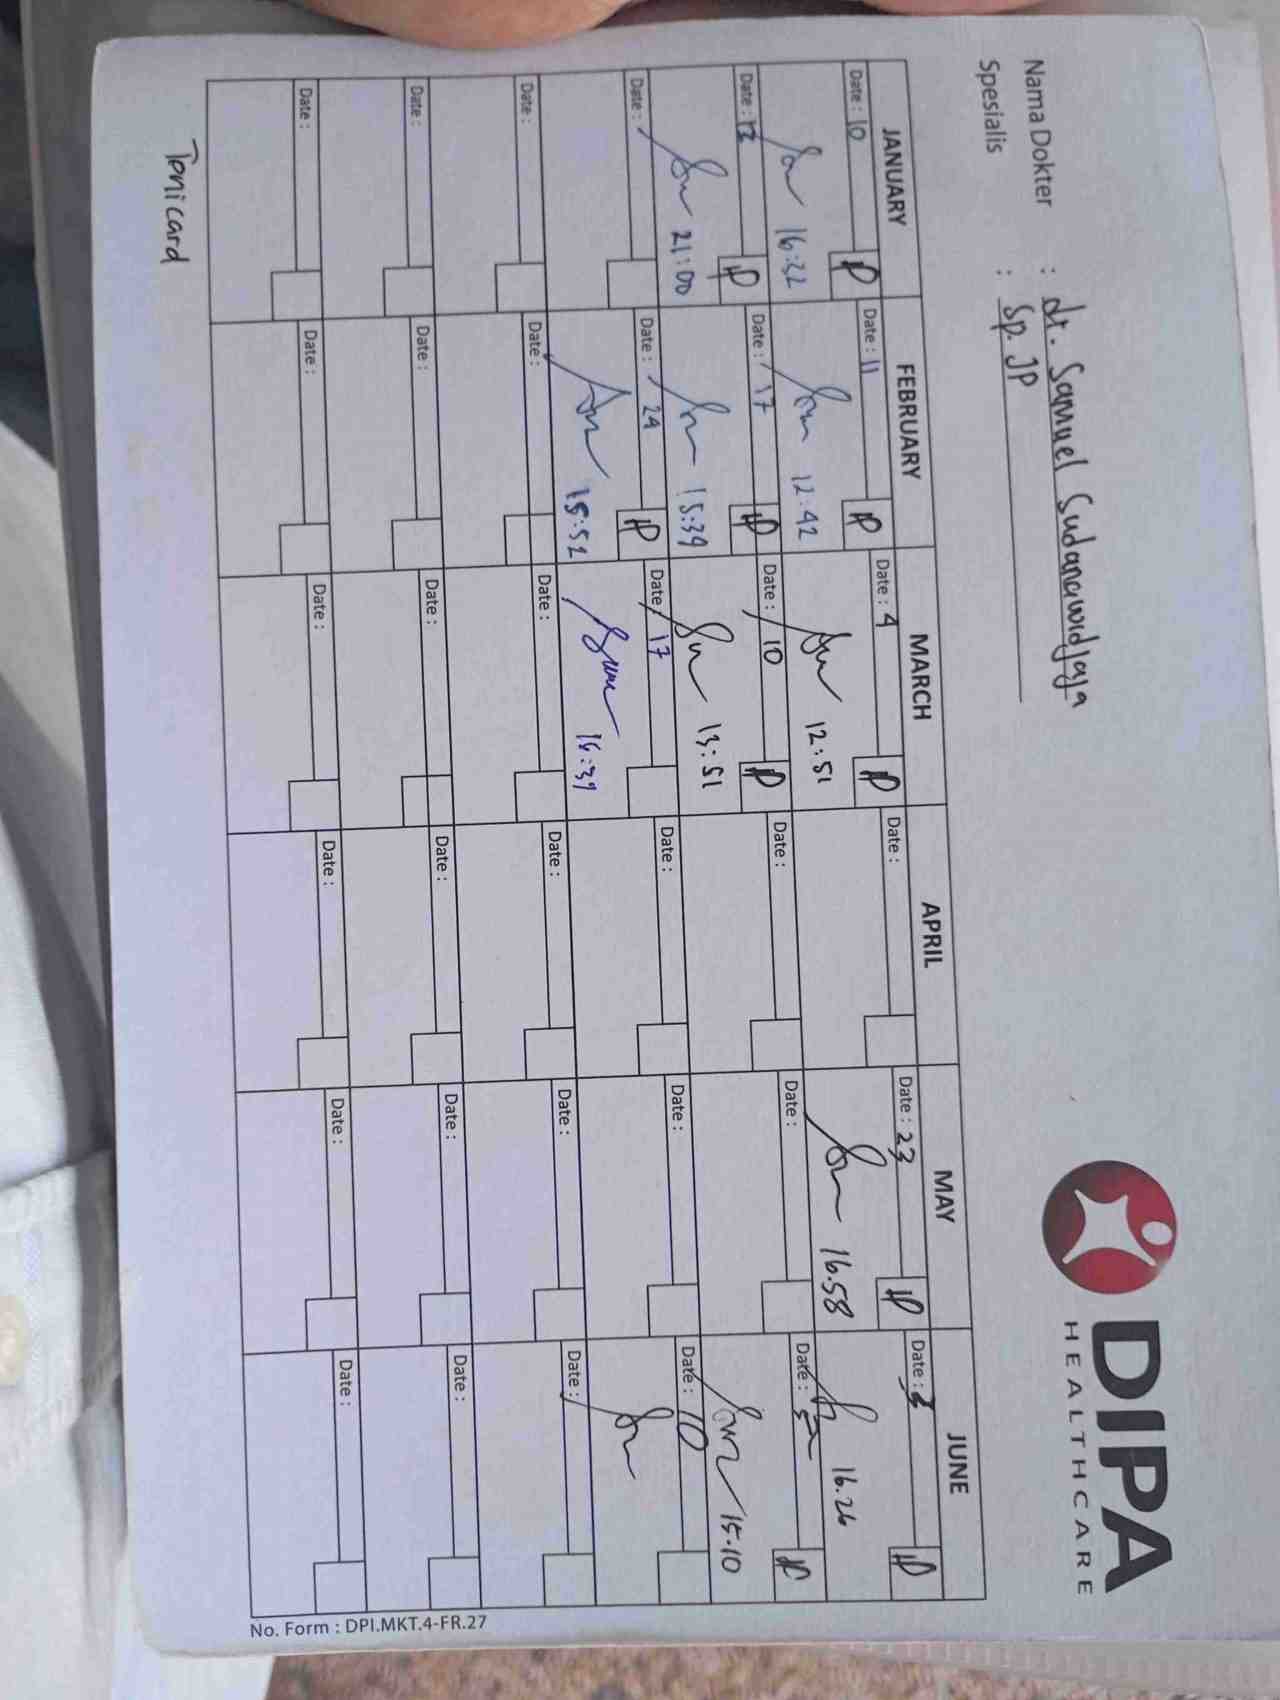 DIPA
HEALTHCARE
Nama Dokter : dr. Samuel Sudanawidjaja
Spesialis : Sp. JP
JANUARY FEBRUARY MARCH APRIL MAY JUNE
Date : 10 Date : 11 Date : 4 Date : Date : 23 Date : 3
16:32 12:42 12:51 16.58 16.26
Date : 13 Date : 17 Date : 10 Date : Date : Date : 5
21:00 15:39 13:51 15.10
Date : Date : 24 Date : 17 Date : Date : Date : 10
15:52 16:39
Date : Date : Date : Date : Date : Date :
Date : Date : Date : Date : Date : Date :
Date : Date : Date : Date : Date : Date :
Tonicard
No. Form : DPI.MKT.4-FR.27